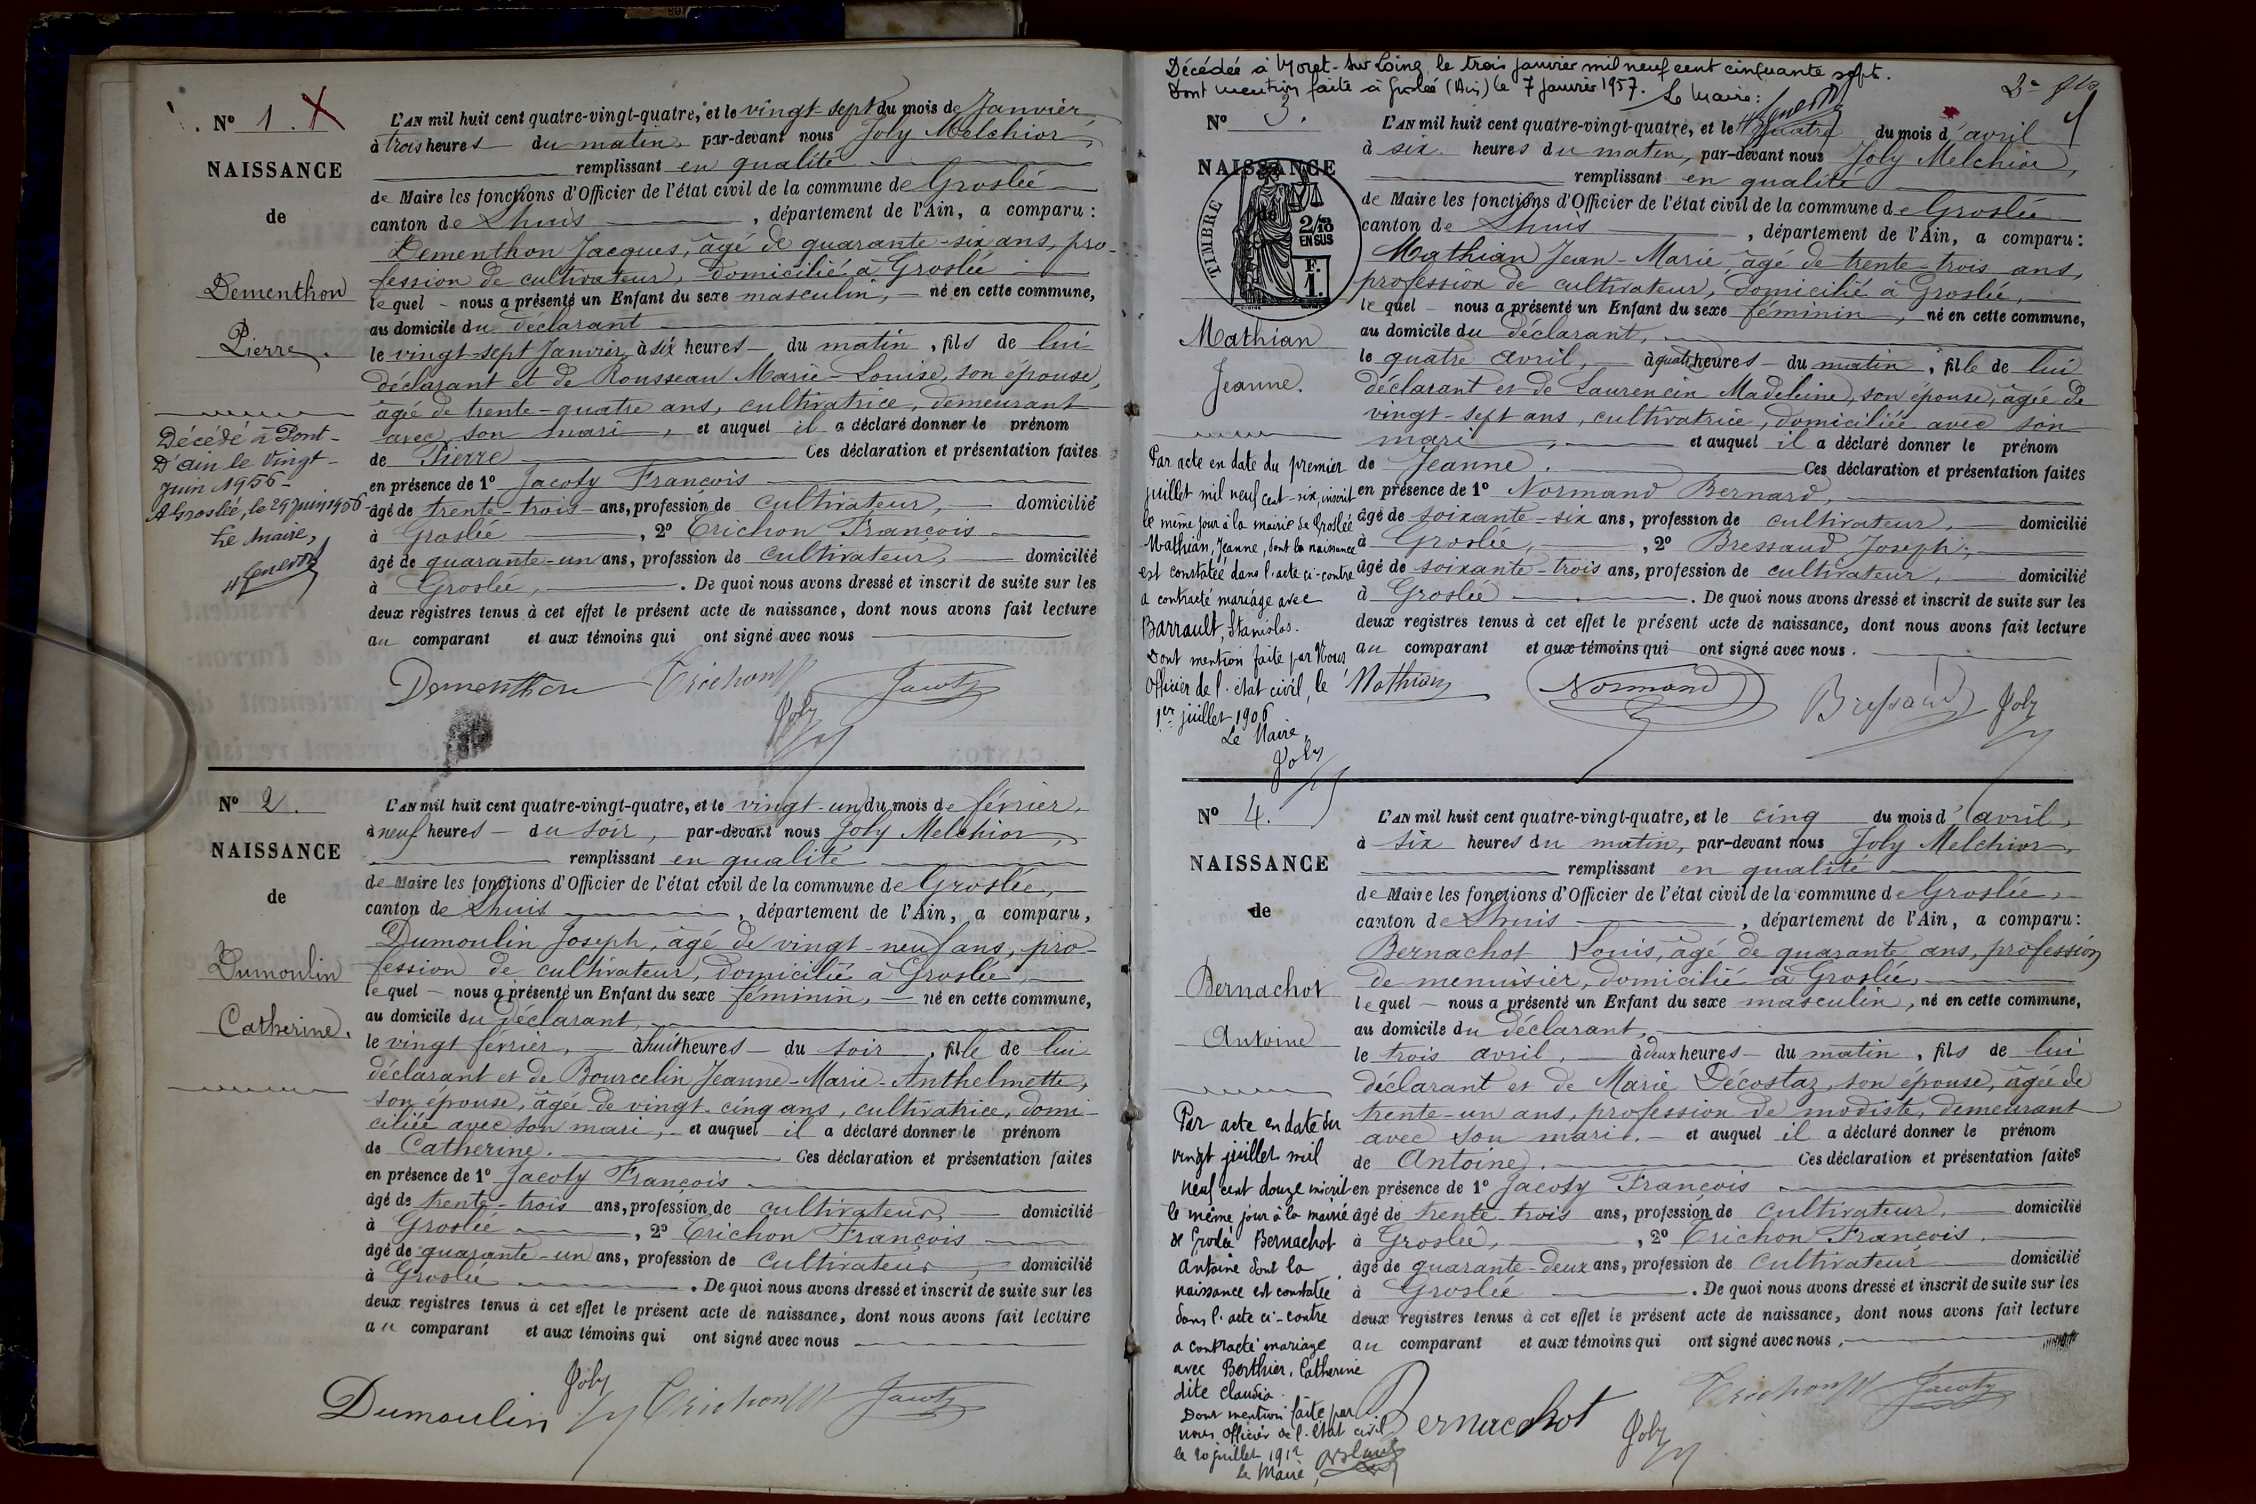 Nº 1.
NAISSANCE
de
Dementhon
Pierre.
Décédé à Pont-
D'ain le Vingt-
Juin 1956-
A Groslée, le 29 juin 1956
Le Maire,
L'AN mil huit cent quatre-vingt-quatre, et le vingt-sept du mois de Janvier
à trois heures du matin, par-devant nous Joly Melchior,
remplissant en qualité
de Maire les fonctions d'Officier de l'état civil de la commune de Groslée
canton de Lhuis, département de l'Ain, a comparu :
Dementhon Jacques, âgé de quarante-six ans, pro-
fession de cultivateur, domicilié à Groslée
lequel nous a présenté un Enfant du sexe masculin, né en cette commune,
au domicile du déclarant
le vingt-sept Janvier, à six heures du matin, fils de lui
déclarant et de Rousseau Marie-Louise, son épouse,
âgé de trente-quatre ans, cultivatrice, demeurant
avec son mari, et auquel il a déclaré donner le prénom
de Pierre Ces déclaration et présentation faites
en présence de 1º Jacoty François
âgé de trente-trois ans, profession de cultivateur, domicilié
à Groslée, 2º Trichon François
âgé de quarante-un ans, profession de cultivateur, domicilié
à Groslée, . De quoi nous avons dressé et inscrit de suite sur les
deux registres tenus à cet effet le présent acte de naissance, dont nous avons fait lecture
au comparant et aux témoins qui ont signé avec nous
Dementhon Trichon Jacoty
Joly
Nº 2.
NAISSANCE
de
Dumoulin
Catherine.
L'AN mil huit cent quatre-vingt-quatre, et le vingt-un du mois de février,
à neuf heures du soir, par-devant nous Joly Melchior,
remplissant en qualité
de Maire les fonctions d'Officier de l'état civil de la commune de Groslée,
canton de Lhuis, département de l'Ain, a comparu,
Dumoulin Joseph, âgé de vingt-neuf ans, pro-
fession de cultivateur, domicilié à Groslée,
lequel nous a présenté un Enfant du sexe féminin, né en cette commune,
au domicile du déclarant,
le vingt février, à huit heures du soir, fille de lui
déclarant et de Bourcelin Jeanne-Marie-Anthelmette,
son épouse, âgée de vingt-cinq ans, cultivatrice, domi-
ciliée avec son mari, et auquel il a déclaré donner le prénom
de Catherine. Ces déclaration et présentation faites
en présence de 1º Jacoty François
âgé de trente-trois ans, profession de cultivateur, domicilié
à Groslée, 2º Trichon François
âgé de quarante-un ans, profession de cultivateur, domicilié
à Groslée . De quoi nous avons dressé et inscrit de suite sur les
deux registres tenus à cet effet le présent acte de naissance, dont nous avons fait lecture
au comparant et aux témoins qui ont signé avec nous
Dumoulin Joly Trichon Jacoty
Décédée à Moret-sur Loing le trois janvier mil neuf cent cinquante sept.
Dont mention faite à Groslée (Ain) le 7 Janvier 1957. Le Maire:
Nº 3.
NAISSANCE
de
TIMBRE
2/10
EN SUS
F.
1.
Mathian
Jeanne.
Par acte en date du premier
juillet mil neuf cent-six, inscrit
le même jour à la mairie de Groslée
Mathian, Jeanne, dont la naissance
est constatée dans l'acte ci-contre
a contracté mariage avec
Barrault, Stanislas.
Dont mention faite par Nous
Officier de l'état civil, le
1er juillet 1906
Le Maire,
Joly
L'AN mil huit cent quatre-vingt-quatre, et le quatre du mois d'avril
à six heures du matin, par-devant nous Joly Melchior,
remplissant en qualité
de Maire les fonctions d'Officier de l'état civil de la commune de Groslée
canton de Lhuis, département de l'Ain, a comparu :
Mathian Jean-Marie âgé de trente-trois ans,
profession de cultivateur, domicilié à Groslée,
lequel nous a présenté un Enfant du sexe féminin, né en cette commune,
au domicile du déclarant,
le quatre avril, à quatre heures du matin, fille de lui
déclarant et de Laurencin Madeleine, son épouse, âgée de
vingt-sept ans, cultivatrice, domiciliée avec son
mari, et auquel il a déclaré donner le prénom
de Jeanne. Ces déclaration et présentation faites
en présence de 1º Normand Bernard,
âgé de soixante-six ans, profession de cultivateur, domicilié
à Groslée, 2º Bressaud Joseph,
âgé de soixante-trois ans, profession de cultivateur, domicilié
à Groslée . De quoi nous avons dressé et inscrit de suite sur les
deux registres tenus à cet effet le présent acte de naissance, dont nous avons fait lecture
au comparant et aux témoins qui ont signé avec nous.
Mathian Normand Bressaud Joly
Nº 4.
NAISSANCE
de
Bernachot
Antoine
Par acte en date du
vingt juillet mil
neuf cent douze inscrit
le même jour à la mairie
de Groslée Bernachot
Antoine dont la
naissance est constatée
dans l'acte ci-contre
a contracté mariage
avec Berthier, Catherine
dite Claudia.
Dont mention faite par
nous Officier de l'état civil
le 20 juillet 1912
Le Maire,
L'AN mil huit cent quatre-vingt-quatre, et le cinq du mois d'avril,
à six heures du matin, par-devant nous Joly Melchior,
remplissant en qualité
de Maire les fonctions d'Officier de l'état civil de la commune de Groslée,
canton de Lhuis, département de l'Ain, a comparu :
Bernachot Louis, âgé de quarante ans, profession
de menuisier, domicilié à Groslée,
lequel nous a présenté un Enfant du sexe masculin, né en cette commune,
au domicile du déclarant,
le trois avril, à deux heures du matin, fils de lui
déclarant et de Marie Décostaz, son épouse, âgée de
trente-un ans, profession de modiste, demeurant
avec son mari, et auquel il a déclaré donner le prénom
de Antoine. Ces déclaration et présentation faites
en présence de 1º Jacoty François
âgé de trente-trois ans, profession de cultivateur, domicilié
à Groslée, 2º Trichon François.
âgé de quarante-deux ans, profession de cultivateur domicilié
à Groslée . De quoi nous avons dressé et inscrit de suite sur les
deux registres tenus à cet effet le présent acte de naissance, dont nous avons fait lecture
au comparant et aux témoins qui ont signé avec nous.
Bernachot Joly Trichon Jacoty